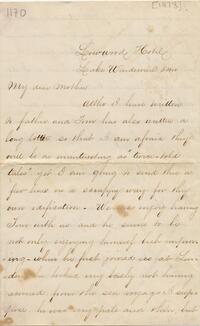 1170
[1873]
Lowwood Hotel
Lake Windermere
My dear Mother
Altho I have written
to father and Tom has also written a
long letter so that I am afraid this
will be as uninteresting as "twice-told
tales" yet I am going to send this a
few lines in a scrappy way for thy
own edification. We are enjoying having
Tom with us and he seems to be
not only enjoying himself but improv-
ing - when he first joined us at Lon-
don he looked very badly not having
recovered from the sea voyage I sup-
pose he was very pale and thin, but